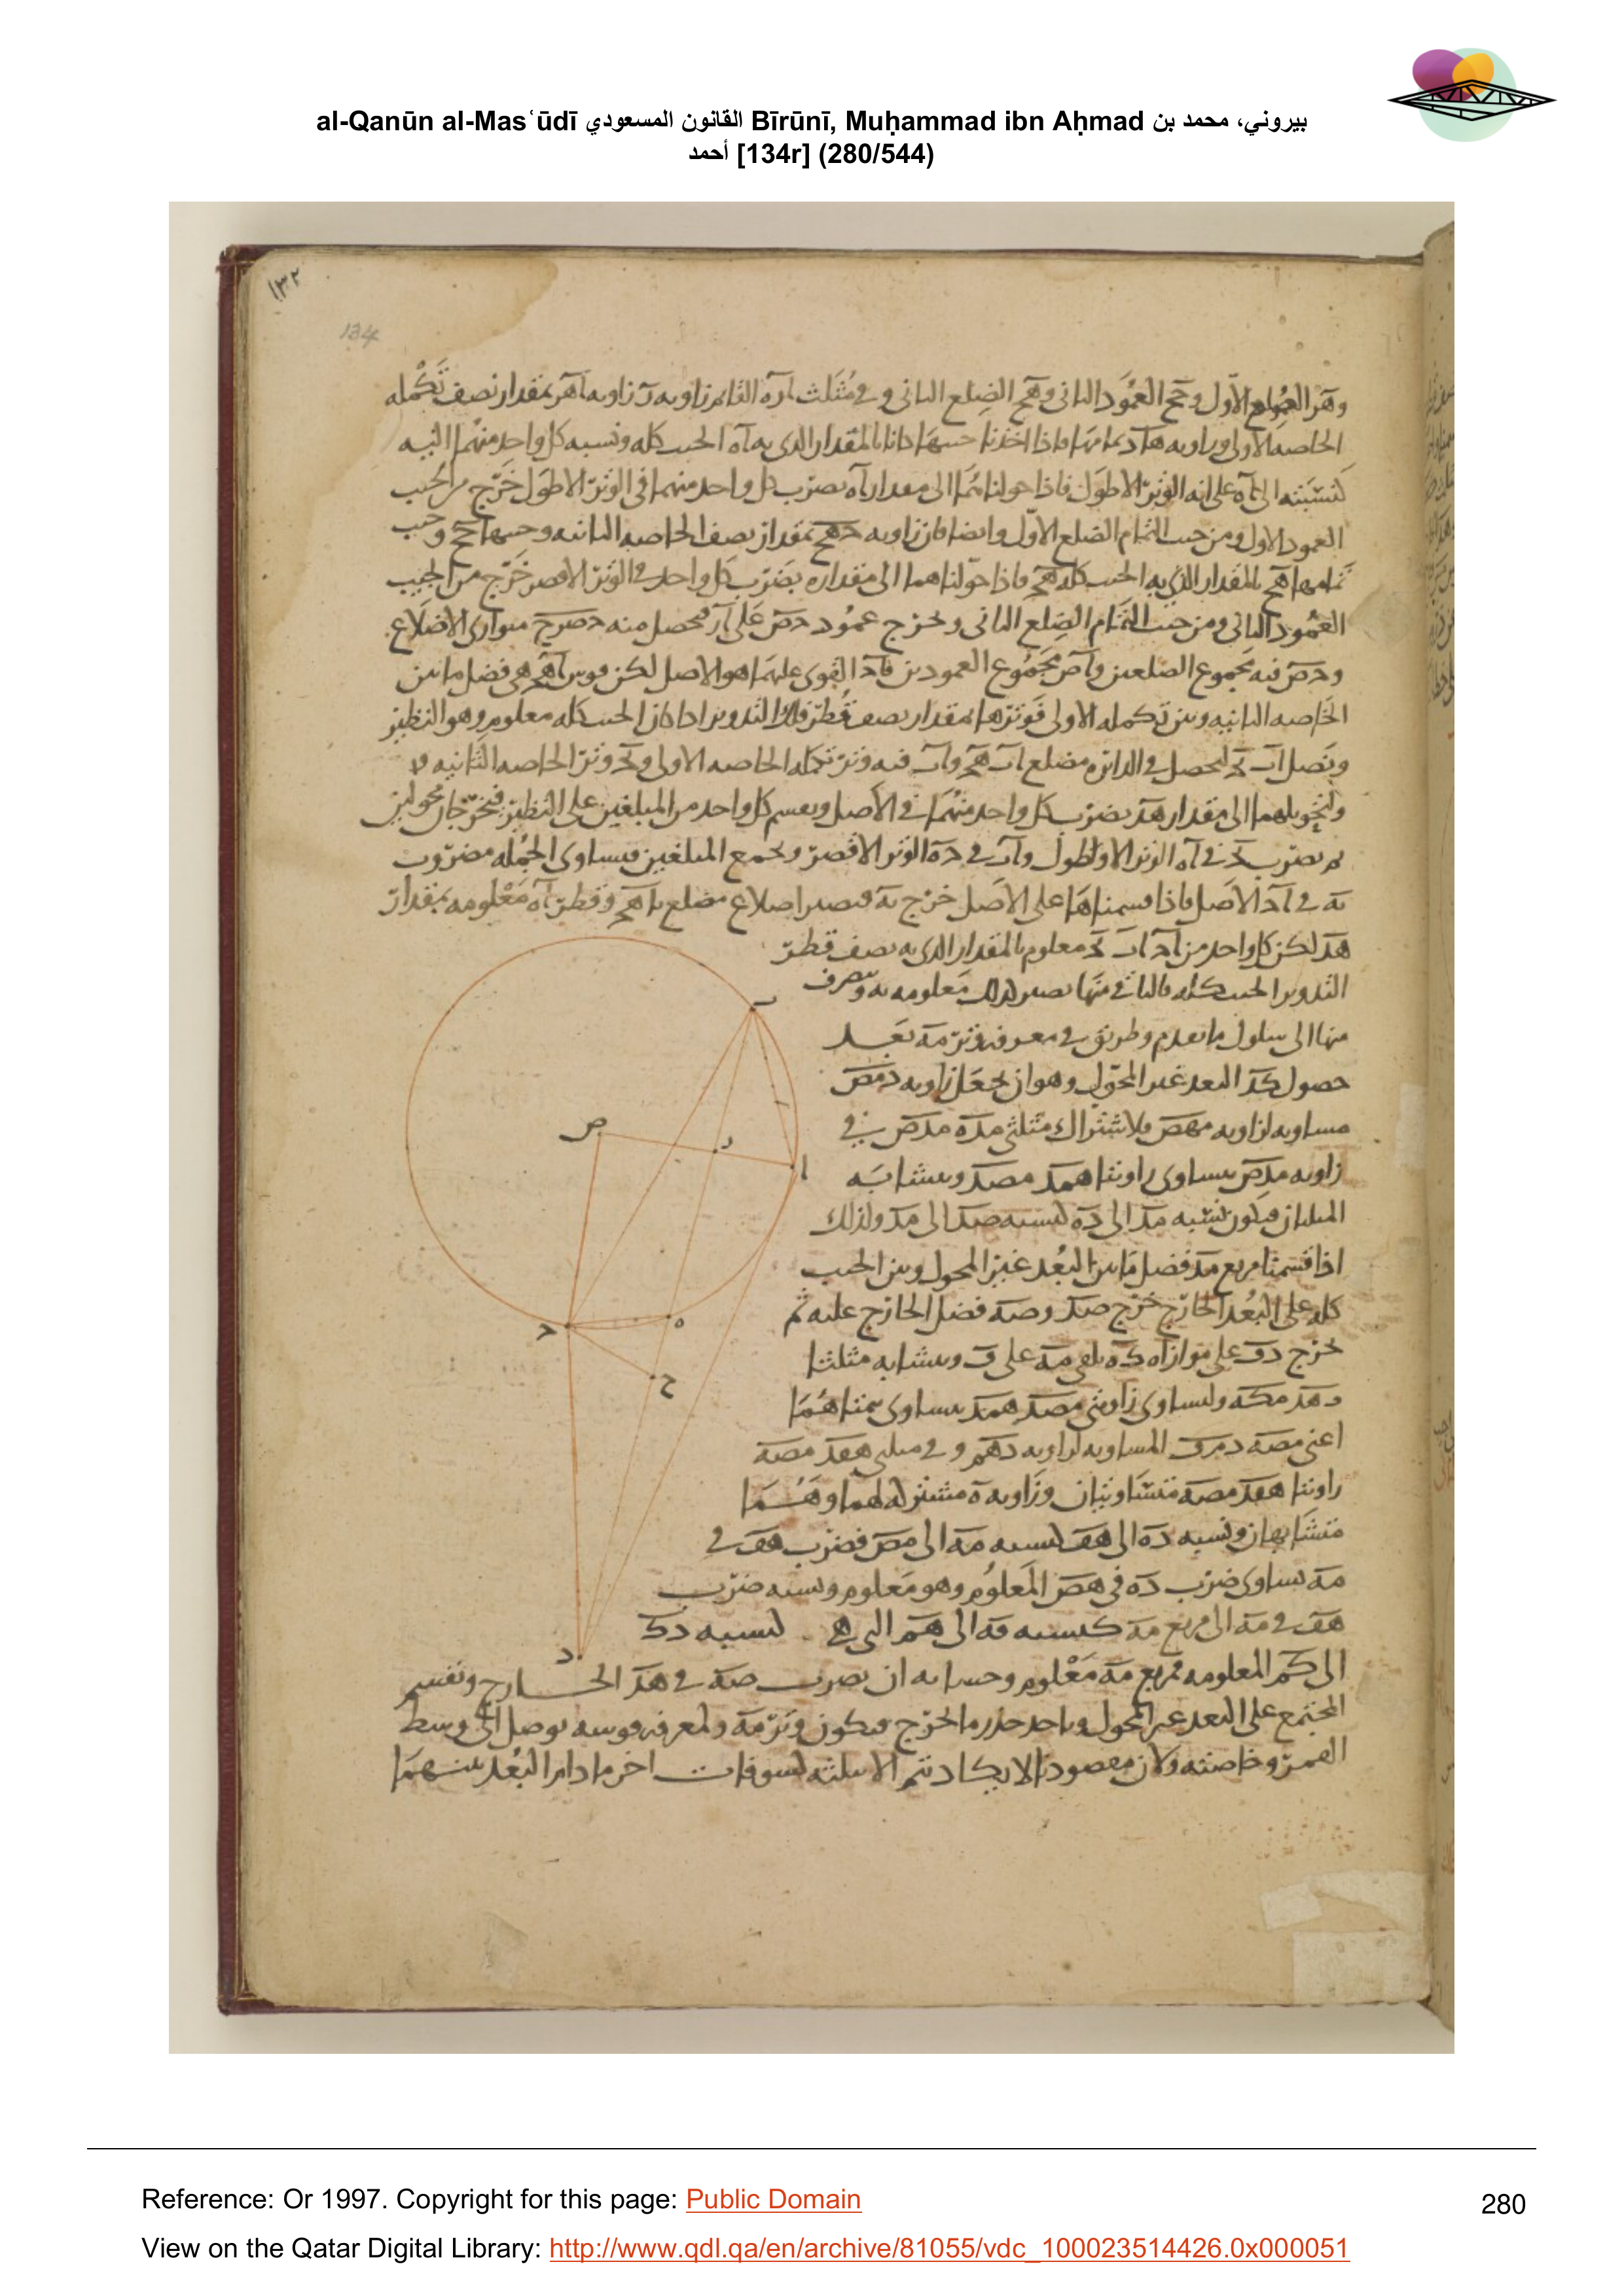 al-Qanūn al-Masʿūdī القانون المسعودي Bīrūnī, Muḥammad ibn Aḥmad بيروني، محمد بن
أحمد [134r] (280/544)
١٣٢
134
وهر الضلع الاول وحح العمود الثانى وهح الضلع الثانى و فى مثلث اره القائم زاويه ر زاويه اهر بمقدار نصف تكمله
الخاصه الاولى وزاويه هار تمامها فاذا اخذنا جيبها كانا بالمقدار الذى به اه الجيب كله ونسبه كل واحد منهما اليه
كنسبته الى اه على انه الوتر الاطول فاذا حولناهما الى مقدار اه بضرب كل واحد منهما فى الوتر الاطول خرج من الجيب
العمود الاول ومن جيب التمام الضلع الاول وايضا فان زاويه حهح بمقدار نصف الخاصه الثانيه وجيبها حح وجيب
تمامها هح بالمقدار الذى به الجيب كله هح فاذا حولناهما الى مقداره بضرب كل واحد فى الوتر الاقصر خرج من الجيب
العمود الثانى ومن جيب التمام الضلع الثانى ونخرج عمود حص على ار فحصل منه حصرح متوازى الاضلاع
وحص فيه مجموع الضلعين واص مجموع العمودين فاح القوى عليهما هو الاصل لكن قوس اهح هى فضل ما بين
الخاصه الثانيه وبين تكمله الاولى فوترها بمقدار نصف قطر فلك التدوير اذا كان الجيب كله معلوم وهو النظير
ونصل اب بح ليحصل فى الدائره مضلع اب هح واب فيه وتر تكمله الخاصه الاولى وبح وتر الخاصه الثانيه
ولتحويلهما الى مقدار هد بضرب كل واحد منهما فى الاصل ويقسم كل واحد من المبلغين على النظير فيخرجان محولين
ثم بضرب بح فى اه الوتر الاطول واب فى حه الوتر الاقصر ونجمع المبلغين فيساوى الجمله مضروب
به فى اح الاصل فاذا قسمناها على الاصل خرج به فيصير اضلاع مضلع باهح وقطر اه معلومه بمقدار
هد لكن كل واحد من اح اب بح معلوم بالمقدار الذى به نصف قطر
التدوير الجيب كله فالباقى منها يصير كذلك معلومه به ويتصرف
منها الى سلوك ما تقدم وطريق فى معرفه وتر مه بعد
حصول كد البعد غير المحول وهو ان نجعل زاويه دمص
مساويه لزاويه مهص فلاشتراك مثلثى مده مدص فى
زاويه مدص يساوى زاويتا همد مصد ويتشابه
المثلثان فيكون نسبه مد الى ده كنسبه صد الى مد ولذلك
اذا قسمنا مربع مد فضل ما بين البعد غير المحول وبين الجيب
كله على البعد الخارج خرج صد وصه فضل الخارج عليه ثم
نخرج دف على موازاه كه يلقى مه على ف ويتشابه مثلثا
دهد مكه ولتساوى زاويتى مصد همد يساوى تمتاهما
اعنى مصه دمف المساويه لزاويه دهم و فى مثلثى هفد مصه
زاويتا هفد مصه متساويتان وزاويه ه مشتركه لهما وهما
متشابهان ونسبه ده الى هف كنسبه مه الى مص فضرب هف فى
مه يساوى ضرب ده فى هص المعلوم وهو معلوم ونسبه ضرب
هف فى مه الى مربع مه كنسبه فه الى هم التى هى كنسبه دك
الى كم المعلومه فمربع مه معلوم وحسابه ان نضرب صه فى هد الخارج ونقسم
المجتمع على البعد غير المحول وناخذ جذر ما يخرج فيكون وتر مه ولمعرفه قوسه نوصل الى وسط
القمر وخاصته ولان مقصودنا لا يكاد يتم الا بثلثه كسوفات اخر ما دام البعد بينهما
ب
ا
ر
ص
ه
ح
ح
د
Reference: Or 1997. Copyright for this page: Public Domain
280
View on the Qatar Digital Library: http://www.qdl.qa/en/archive/81055/vdc_100023514426.0x000051